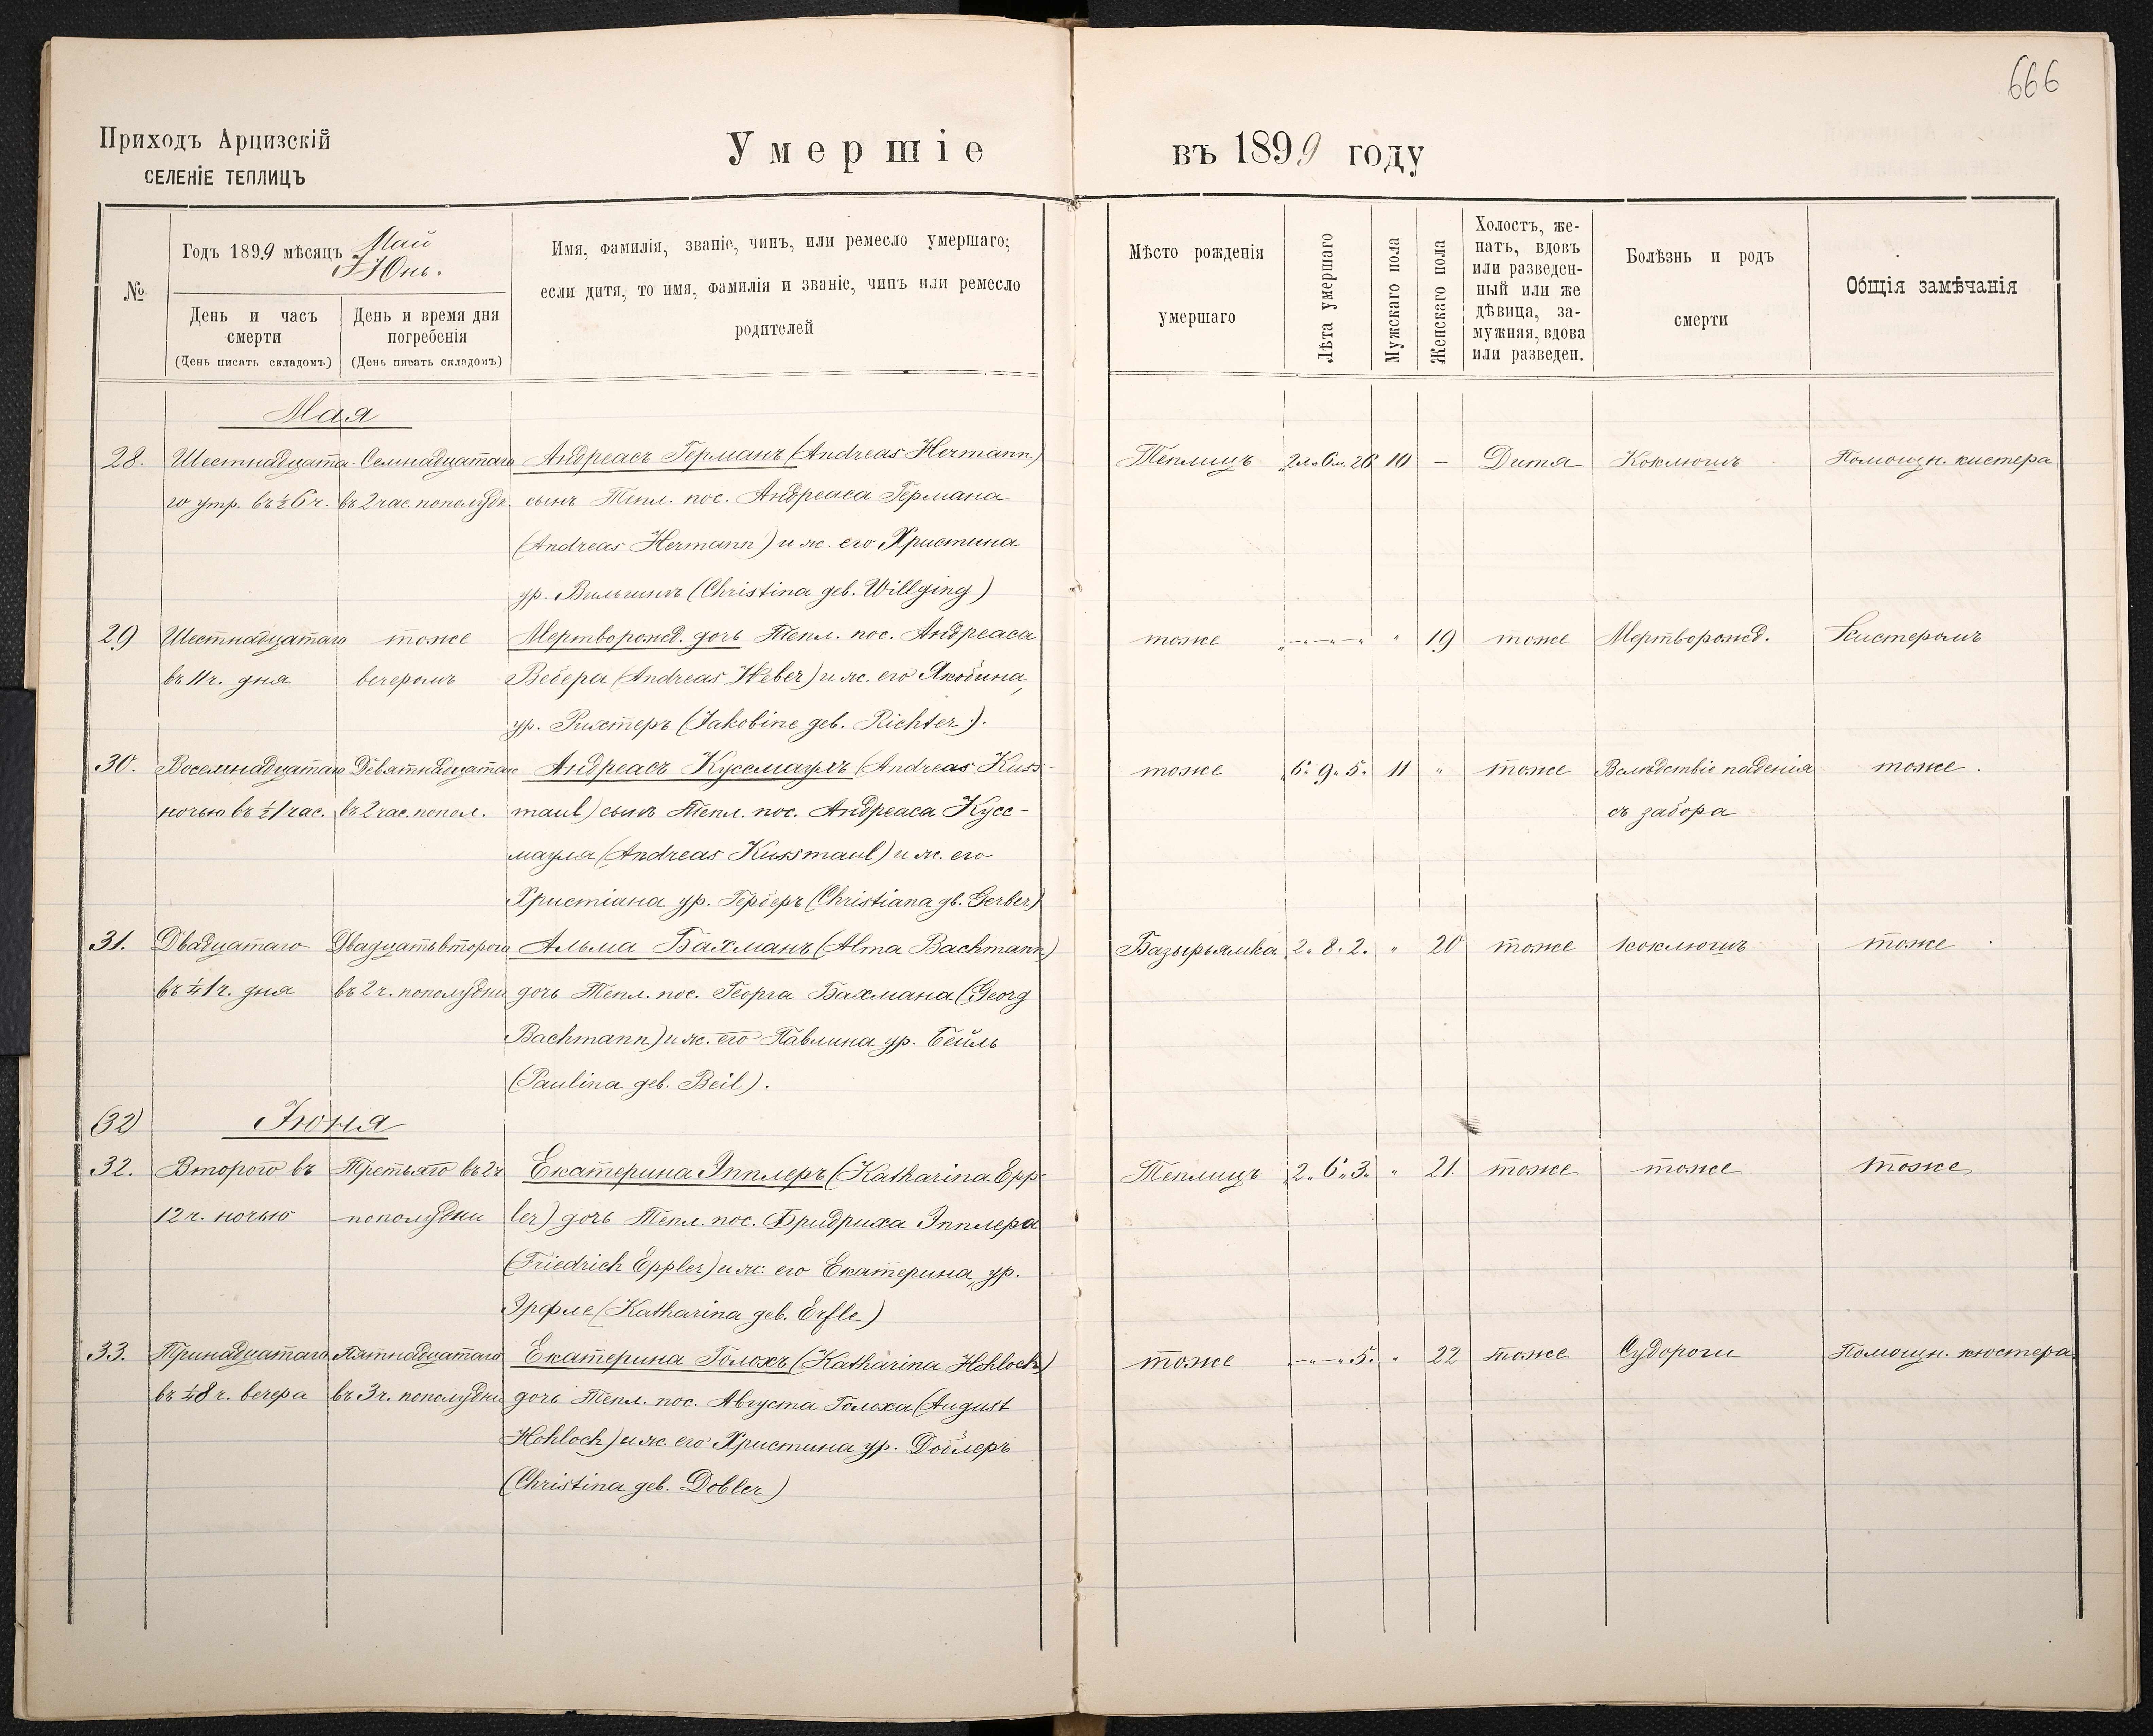 666
Приходъ Арцизскій
СЕЛЕНІЕ ТЕПЛИЦЪ
Умершіе
въ 1899 году
№
Годъ 1899 мѣсяцъ Май
Іюнь.
День и часъ смерти
(День писать складомъ)
День и время дня погребенія
(День писать складомъ)
Имя, фамилія, званіе, чинъ, или ремесло умершаго;
если дитя, то имя, фамилія и званіе, чинъ или ремесло
родителей
Мѣсто рожденія
умершаго
Лѣта умершаго
Мужскаго пола
Женскаго пола
Холостъ, же-
натъ, вдовъ
или разведен-
ный или же
дѣвица, за-
мужняя, вдова
или разведен.
Болѣзнь и родъ
смерти
Общія замѣчанія
Мая
28. Шестнадцата- Семнадцатаго Андреасъ Германъ (Andreas Hermann) Теплицъ 2л. 6м. 26 10 — Дитя Коклюшъ Помощн. кистера
го утр. въ ½6 ч. въ 2 час. пополудн. сынъ Тепл. пос. Андреаса Германа
(Andreas Hermann) и ж. его Христина
ур. Вильгингъ (Christina geb. Willging)
29 Шестнадцатаго тоже Мертворожд. дочь Тепл. пос. Андреаса тоже „—„—„—„ „ 19 тоже Мертворожд. Кистеромъ
въ 11 ч. дня вечеромъ Вебера (Andreas Weber) и ж. его Якобина,
ур. Рихтеръ (Jakobine geb. Richter).
30. Восемнадцатаго Девятнадцатаго Андреасъ Куссмаулъ (Andreas Kuss- тоже 6„ 9„ 5„ 11 „ тоже Вслѣдствіе паденія тоже.
ночью въ ½1 час. въ 2 час. попол. maul) сынъ Тепл. пос. Андреаса Кусс- съ забора
маула (Andreas Kussmaul) и ж. его
Христіана ур. Герберъ (Christiana gb. Gerber)
31. Двадцатаго Двадцатьвтораго Альма Бахманъ (Alma Bachmann) Базырьямка 2„ 8„ 2„ „ 20 тоже коклюшъ тоже.
въ ¼1 ч. дня въ 2 ч. пополудни дочь Тепл. пос. Георга Бахмана (Georg
Bachmann) и ж. его Павлина ур. Бейль
(Paulina geb. Beil).
(32) Іюня
32. Второго въ Третьяго въ 2 ч. Екатерина Эпплеръ (Katharina Epp- Теплицъ 2„ 6„ 3„ „ 21. тоже тоже тоже
12 ч. ночью пополудни ler) дочь Тепл. пос. Фридриха Эпплера
(Friedrich Eppler) и ж. его Екатерина, ур.
Эрфле (Katharina geb. Erfle)
33. Тринадцатаго Пятнадцатаго Екатерина Голохъ (Katharina Hohloch) тоже „—„—„ 5„ „ 22 тоже Судороги Помощн. кюстера
въ ¼8 ч. вечера въ 3 ч. пополудни дочь Тепл. пос. Августа Голоха (August
Hohloch) и ж. его Христина ур. Доблеръ
(Christina geb. Dobler)